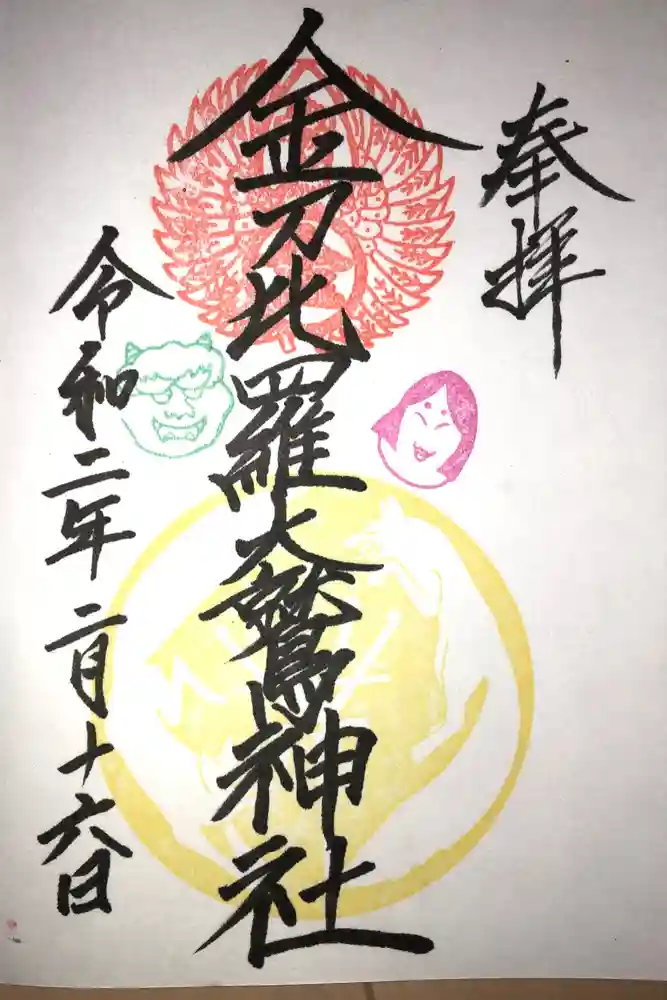 奉拝
金刀比羅大鷲神社
令和二年二月十六日